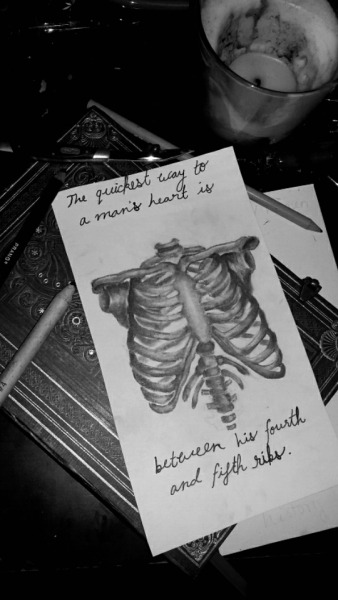 The quickest way to
a man's heart is
between his fourth
and fifth ribs.